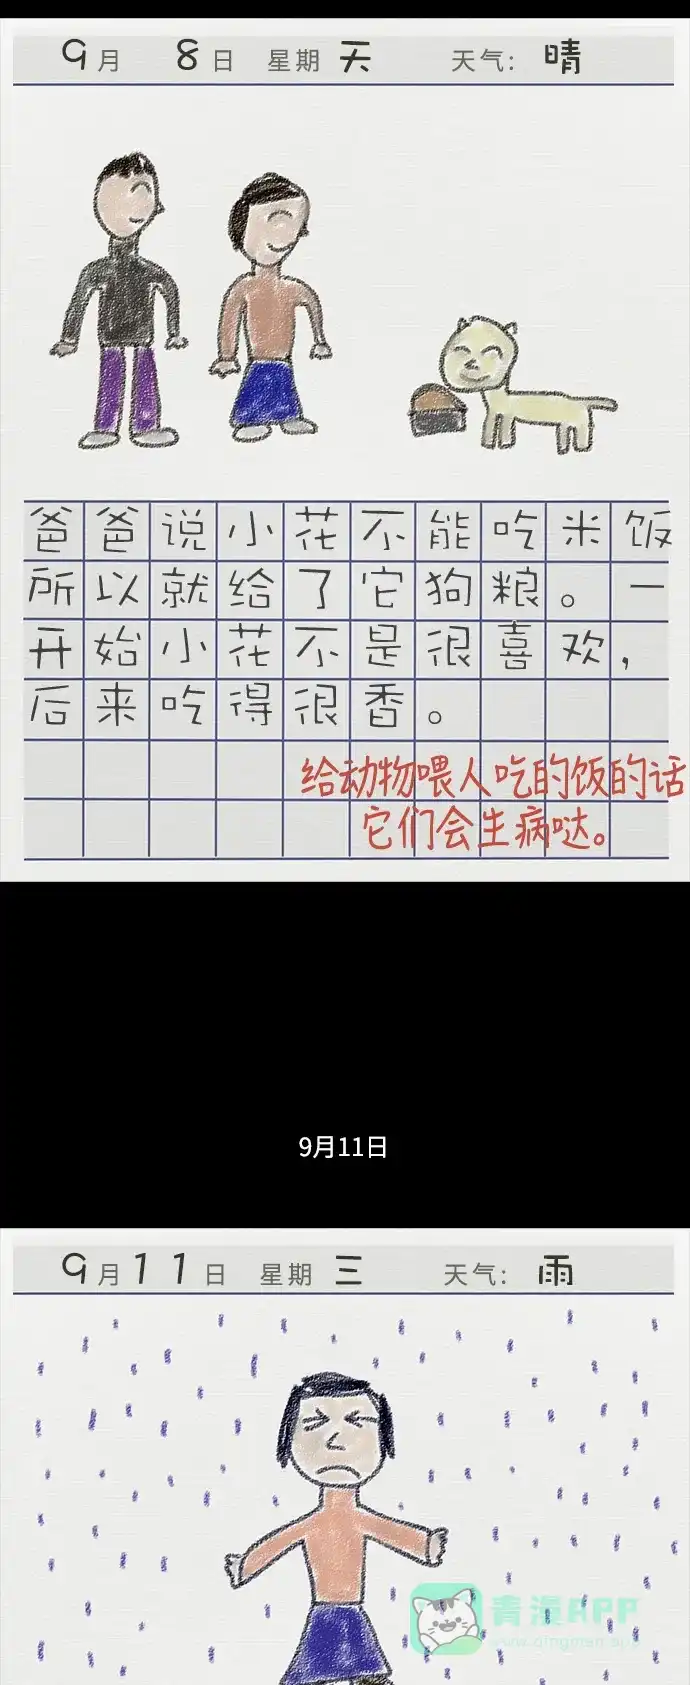 9月 8日 星期天 天气: 晴
爸爸说小花不能吃米饭
所以就给了它狗粮。一
开始小花不是很喜欢，
后来吃得很香。
给动物喂人吃的饭的话
它们会生病哒。
9月11日
9月11日 星期三 天气: 雨
青漫APP
www.qingman.app